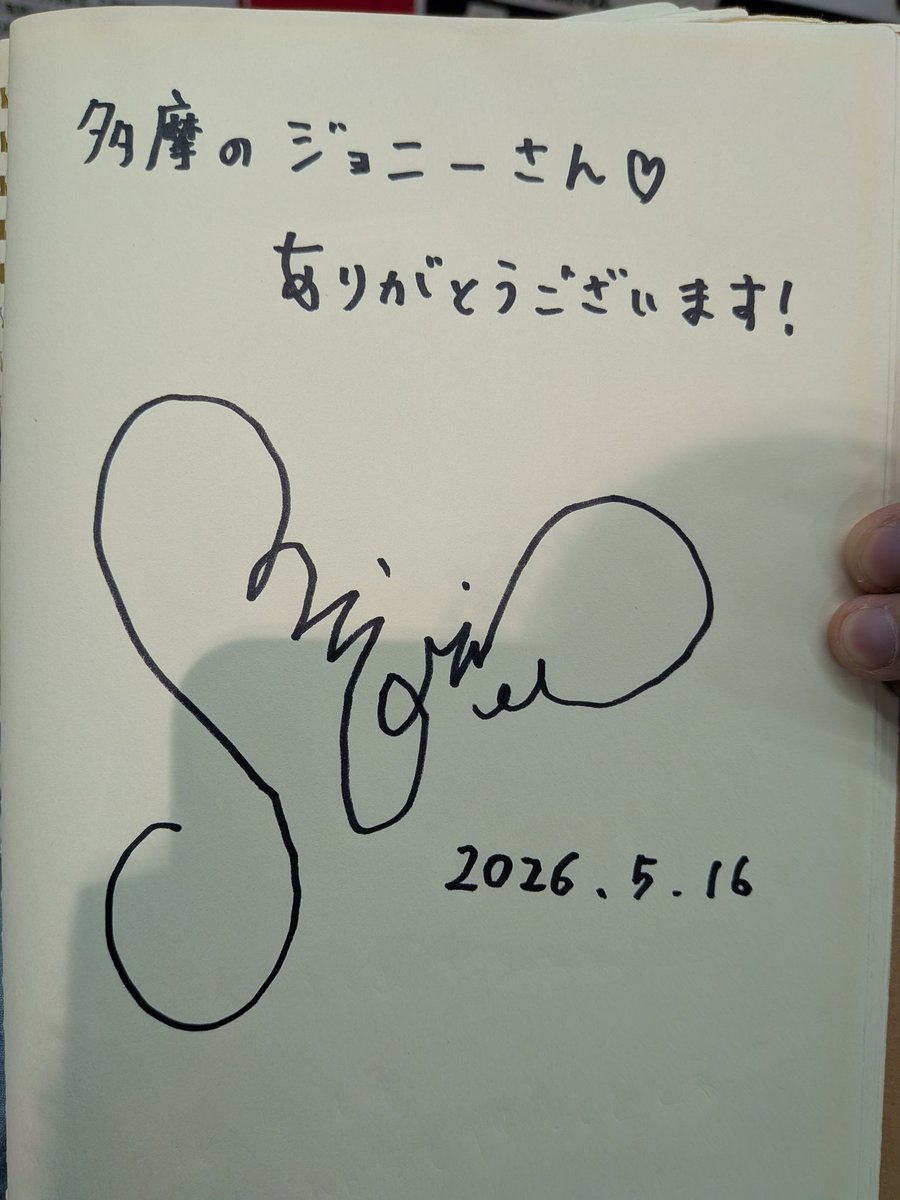 多摩のジョニーさん♡
ありがとうございます!
2026.5.16